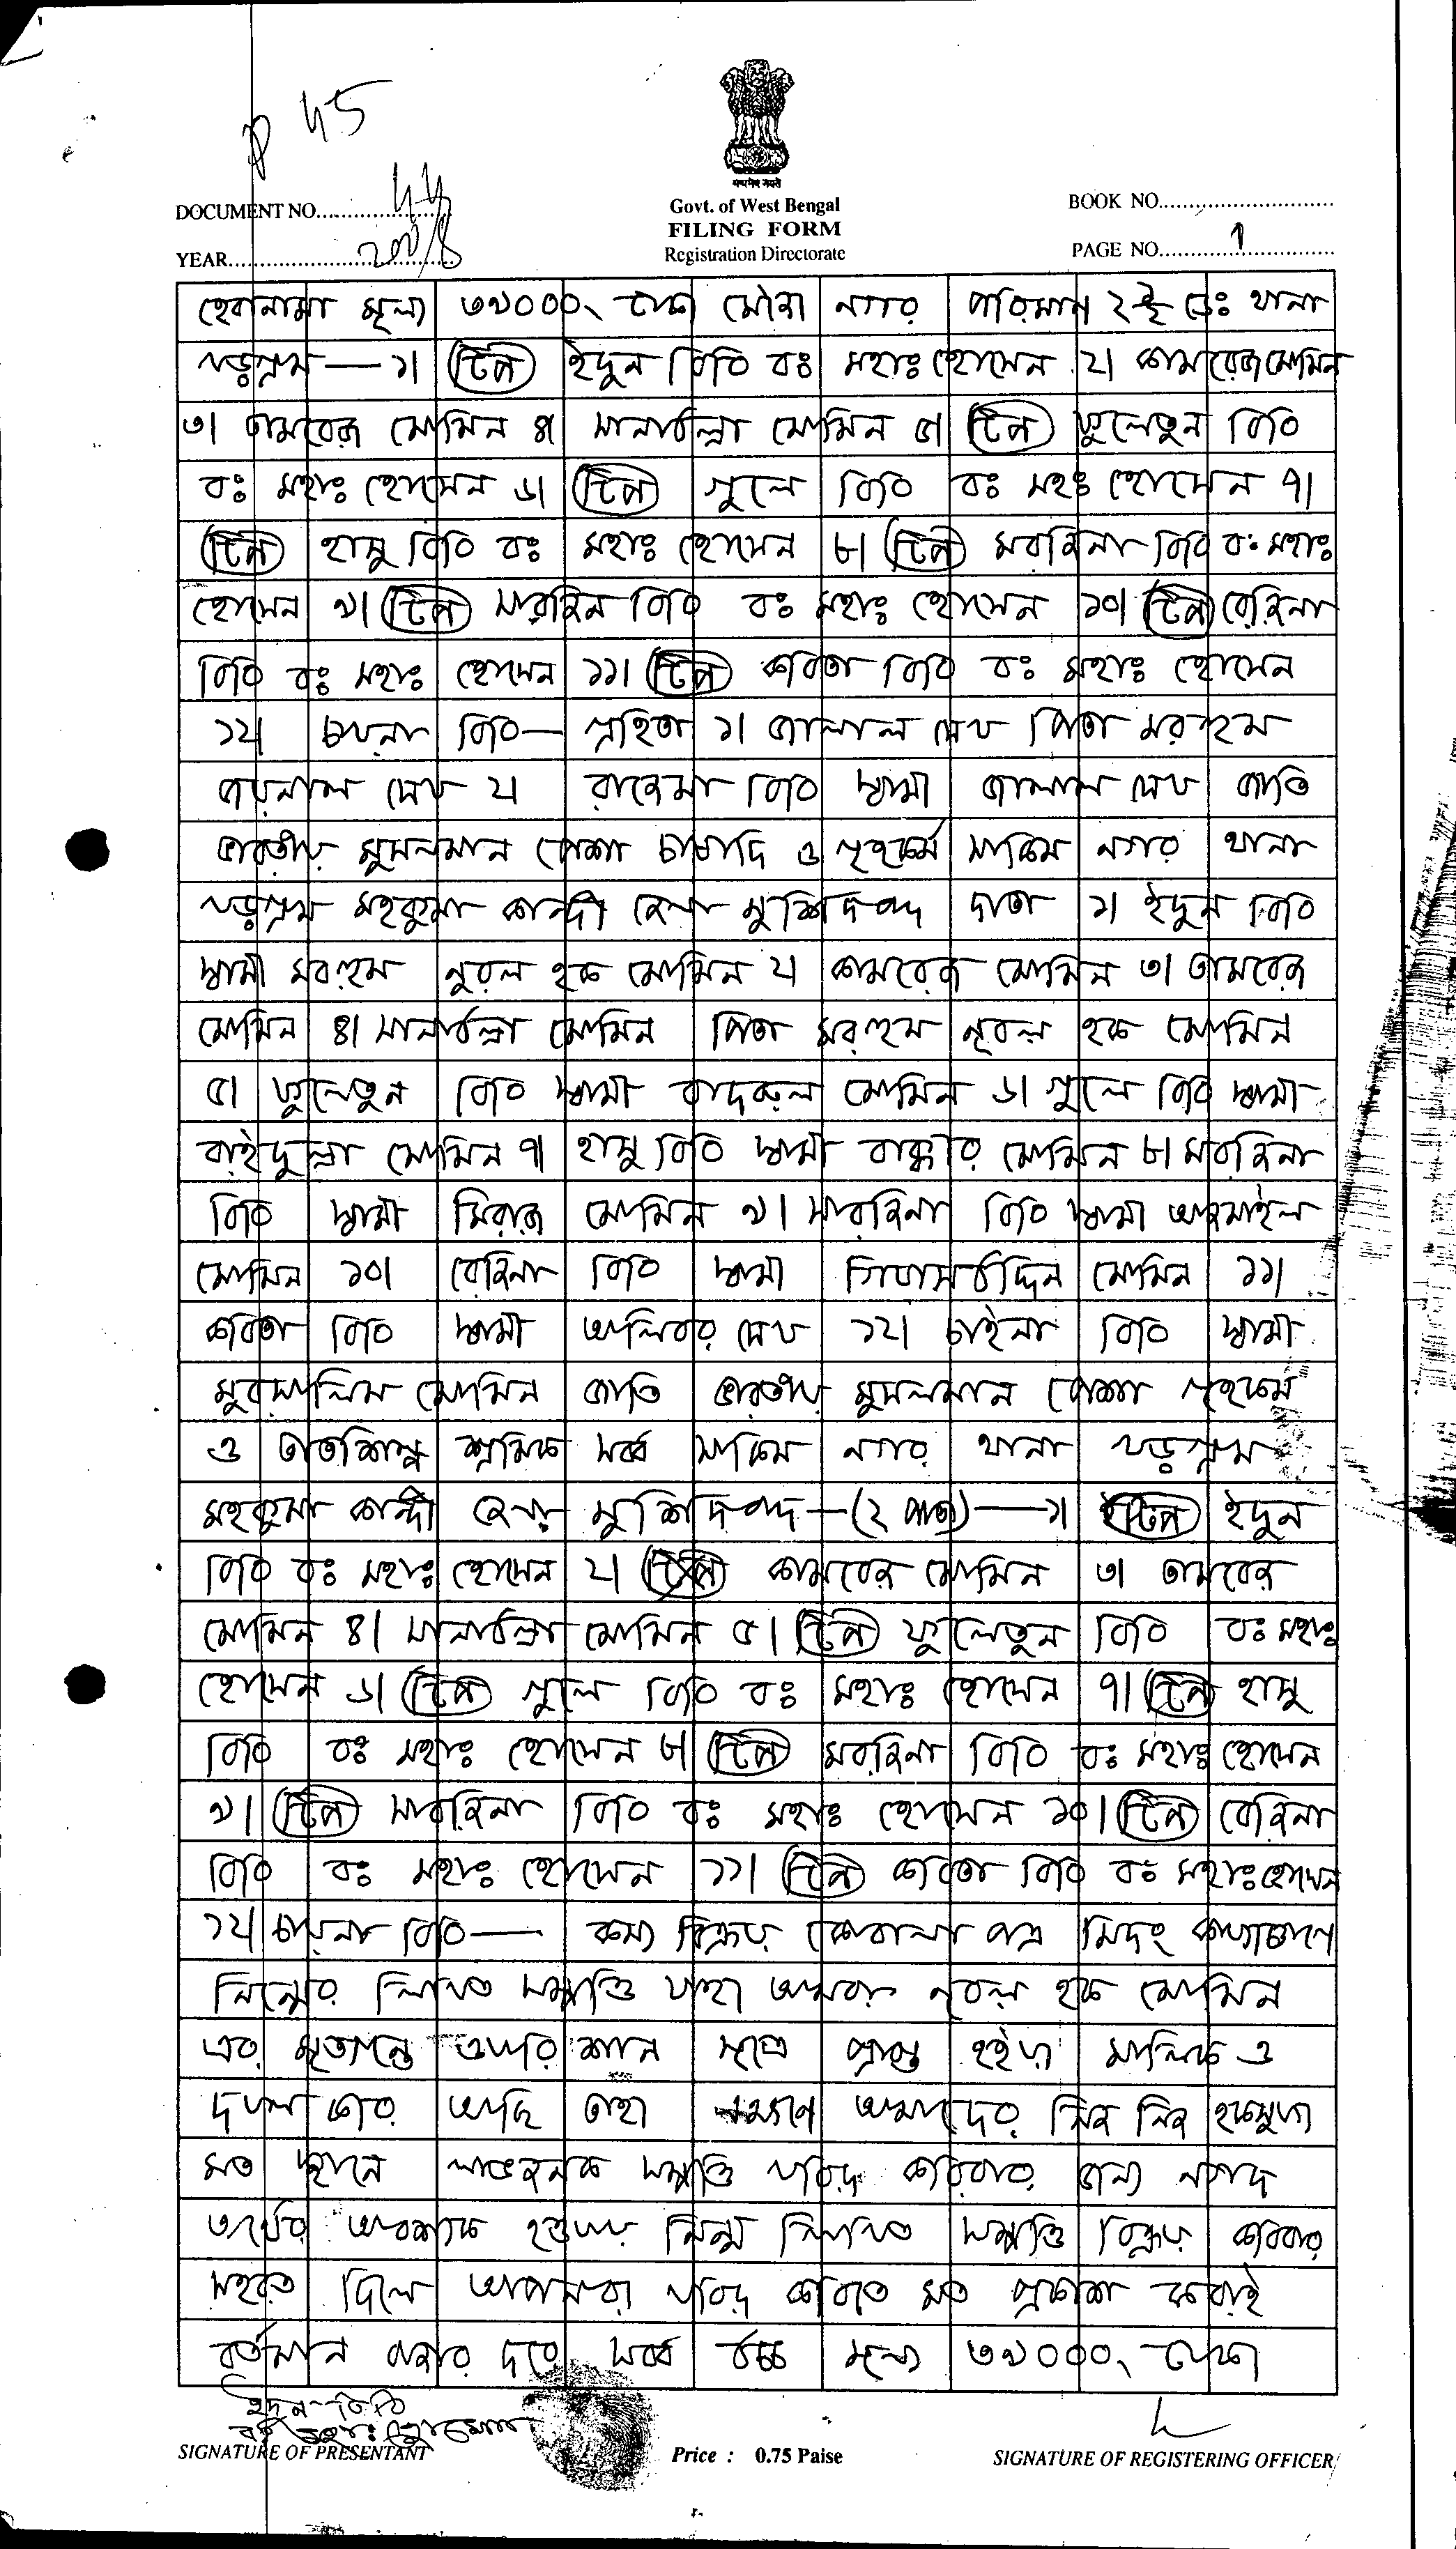 45
DOCUMENT NO. 44
YEAR 2008
सत्यमेव जयते
Govt. of West Bengal
FILING FORM
Registration Directorate
BOOK NO.
PAGE NO. 1
মূল্য ৩৯০০০ টাকা মৌজা নগর পরিমান থানা
খড়গ্রাম — ১। টিপ ইদুন বিবি বঃ মহাঃ হোসেন ২। কামরেজ মোমিন
৩। তামরেজ মোমিন ৪। সানাউল্লা মোমিন ৫। টিপ ফুলেতুন বিবি
বঃ মহাঃ হোসেন ৬। টিপ গুলে বিবি বঃ মহঃ হোসেন ৭।
টিপ হাসু বিবি বঃ মহাঃ হোসেন ৮। টিপ মরজিনা বিবি বঃ মহাঃ
হোসেন ৯। টিপ সারজিন বিবি বঃ মহাঃ হোসেন ১০। টিপ রেজিনা
বিবি বঃ মহাঃ হোসেন ১১। টিপ কবিতা বিবি বঃ মহাঃ হোসেন
১২। চায়না বিবি — গ্রহিতা ১। জালাল সেখ পিতা মরহুম
জয়নাল সেখ ২। বিবি স্বামী জালাল সেখ জাতি
ভারতীয় মুসলমান পেশা চাষাদি ও গৃহকর্ম সাকিম নগর থানা
খড়গ্রাম মহকুমা কান্দী জেলা মুর্শিদাবাদ দাতা ১। ইদুন বিবি
স্বামী মরহুম নুরল হক মোমিন ২। কামরেজ মোমিন ৩। তামরেজ
মোমিন ৪। সানাউল্লা মোমিন পিতা মরহুম নূরল হক মোমিন
৫। ফুলেতুন বিবি স্বামী বাদরুল মোমিন ৬। গুলে বিবি স্বামী
বাইদুল্লা মোমিন ৭। হাসু বিবি স্বামী বাক্কার মোমিন ৮। মরজিনা
বিবি স্বামী মিরাজ মোমিন ৯। সারজিনা বিবি স্বামী আজমাইল
মোমিন ১০। রেজিনা বিবি স্বামী গিয়াসউদ্দিন মোমিন ১১।
কবিতা বিবি স্বামী আলিবর সেখ ১২। চাইনা বিবি স্বামী
মুরসালিম মোমিন জাতি ভারতীয় মুসলমান পেশা গৃহকর্ম
ও তাতশিল্প শ্রমিক সর্ব্ব সাকিম নগর থানা খড়গ্রাম
মহকুমা কান্দী জেলা মুর্শিদাবাদ — (২ পাতা) — ১। টিপ ইদুন
বিবি বঃ মহাঃ হোসেন ২। কামরেজ মোমিন ৩। তামরেজ
মোমিন ৪। সানাউল্লা মোমিন ৫। টিপ ফুলেতুন বিবি বঃ মহাঃ
হোসেন ৬। টিপ গুলে বিবি বঃ মহাঃ হোসেন ৭। টিপ হাসু
বিবি বঃ মহাঃ হোসেন ৮। টিপ মরজিনা বিবি বঃ মহাঃ হোসেন
৯। টিপ সারজিনা বিবি বঃ মহাঃ হোসেন ১০। টিপ রেজিনা
বিবি বঃ মহাঃ হোসেন ১১। টিপ কবিতা বিবি বঃ মহাঃ হোসেন
১২। চায়না বিবি — কস্য বিক্রয় কোবালা পত্র মিদং কার্য্যাঞ্চাগে
নিম্নের লিখিত সম্পত্তি যাহা আমরা নূরল হক মোমিন
এর মৃত্যান্তে ওয়ারিশান সূত্রে প্রাপ্ত হইয়া মালিক ও
দখল কার আছি তাহা এক্ষণে আমাদের নিজ নিজ
মত স্থানে লাভজনক সম্পত্তি খরিদ করিবার জন্য নগদ
অর্থের আবশ্যক হওয়ায় নিম্ন লিখিত সম্পত্তি বিক্রয় করিবার
সহরত দিলে আপনারা খরিদ করিতে মত প্রকাশ করাই
বর্তমান বাজার দরে সর্ব্ব উচ্চ মূল্য ৩৯০০০ টাকা
ইদুন বিবি
বঃ মহাঃ হোসেন
SIGNATURE OF PRESENTANT
Price : 0.75 Paise
SIGNATURE OF REGISTERING OFFICER